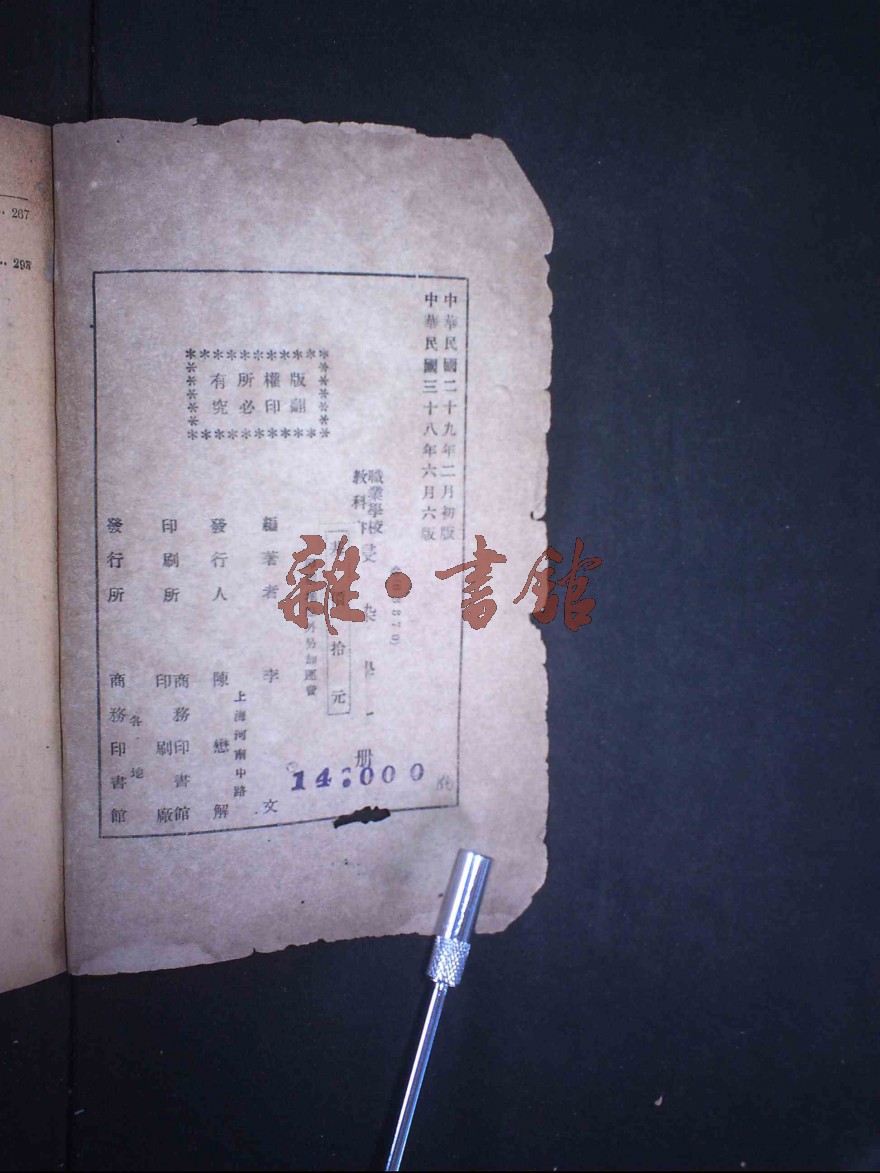 中華民國二十九年二月初版
中華民國三十八年六月六版
職業學校
教科書
染
一冊
拾元
外另加運費
版權所有
翻印必究
編著者 李文
發行人 陳懋解
上海河南中路
印刷所 商務印書館
印刷廠
發行所 商務印書館
各地
14:000
雜·書館
.. 267
.. 295